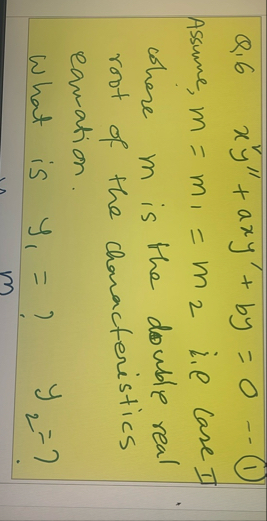 Q.6 x²y'' + axy' + by = 0 -- ①
Assume, m = m₁ = m₂ i.e case II
where m is the double real
root of the characteristics
equation.
What is y₁ = ? y₂ = ?
m